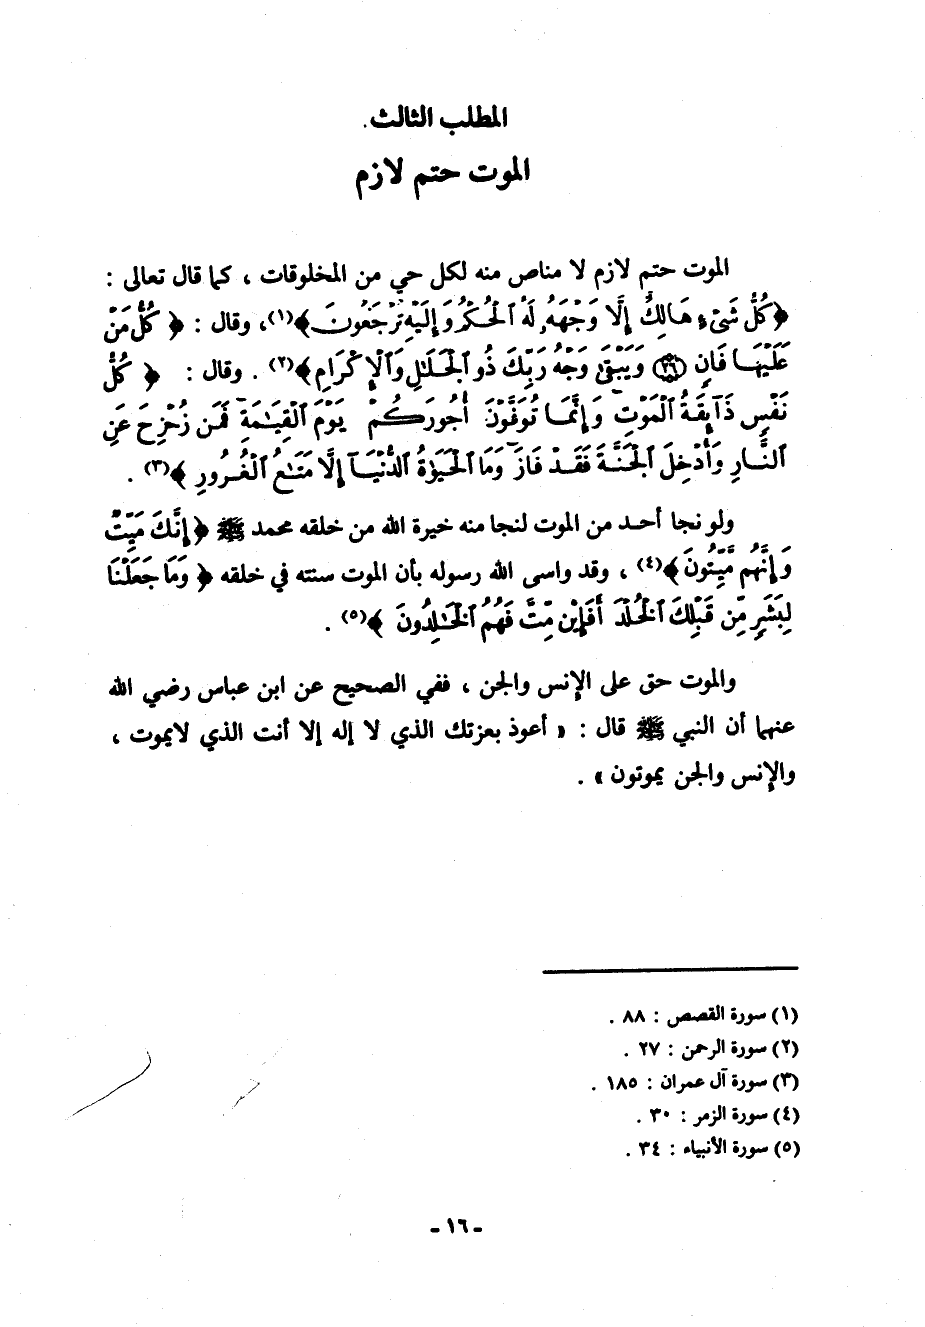 المطلب الثالث.
الموت حتم لازم
الموت حتم لازم لا مناص منه لكل حي من المخلوقات ، كما قال تعالى :
﴿كُلُّ شَيْءٍ هَالِكٌ إِلَّا وَجْهَهُ لَهُ الْحُكْمُ وَإِلَيْهِ تُرْجَعُونَ﴾(١)، وقال : ﴿ كُلُّ مَنْ
عَلَيْهَا فَانٍ ۝٢٦ وَيَبْقَىٰ وَجْهُ رَبِّكَ ذُو الْجَلَٰلِ وَالْإِكْرَامِ﴾(٢) . وقال : ﴿ كُلُّ
نَفْسٍ ذَآئِقَةُ الْمَوْتِ وَإِنَّمَا تُوَفَّوْنَ أُجُورَكُمْ يَوْمَ الْقِيَٰمَةِ فَمَن زُحْزِحَ عَنِ
النَّارِ وَأُدْخِلَ الْجَنَّةَ فَقَدْ فَازَ وَمَا الْحَيَوٰةُ الدُّنْيَآ إِلَّا مَتَٰعُ الْغُرُورِ ﴾(٣) .
ولو نجا أحد من الموت لنجا منه خيرة الله من خلقه محمد ﷺ ﴿إِنَّكَ مَيِّتٌ
وَإِنَّهُم مَّيِّتُونَ﴾(٤) ، وقد واسى الله رسوله بأن الموت سنته في خلقه ﴿ وَمَا جَعَلْنَا
لِبَشَرٍ مِّن قَبْلِكَ الْخُلْدَ أَفَإِيْن مِّتَّ فَهُمُ الْخَٰلِدُونَ ﴾(٥) .
والموت حق على الإنس والجن ، ففي الصحيح عن ابن عباس رضي الله
عنهما أن النبي ﷺ قال : « أعوذ بعزتك الذي لا إله إلا أنت الذي لايموت ،
والإنس والجن يموتون » .
(١) سورة القصص : ٨٨ .
(٢) سورة الرحمن : ٢٧ .
(٣) سورة آل عمران : ١٨٥ .
(٤) سورة الزمر : ٣٠ .
(٥) سورة الأنبياء : ٣٤ .
- ١٦ -